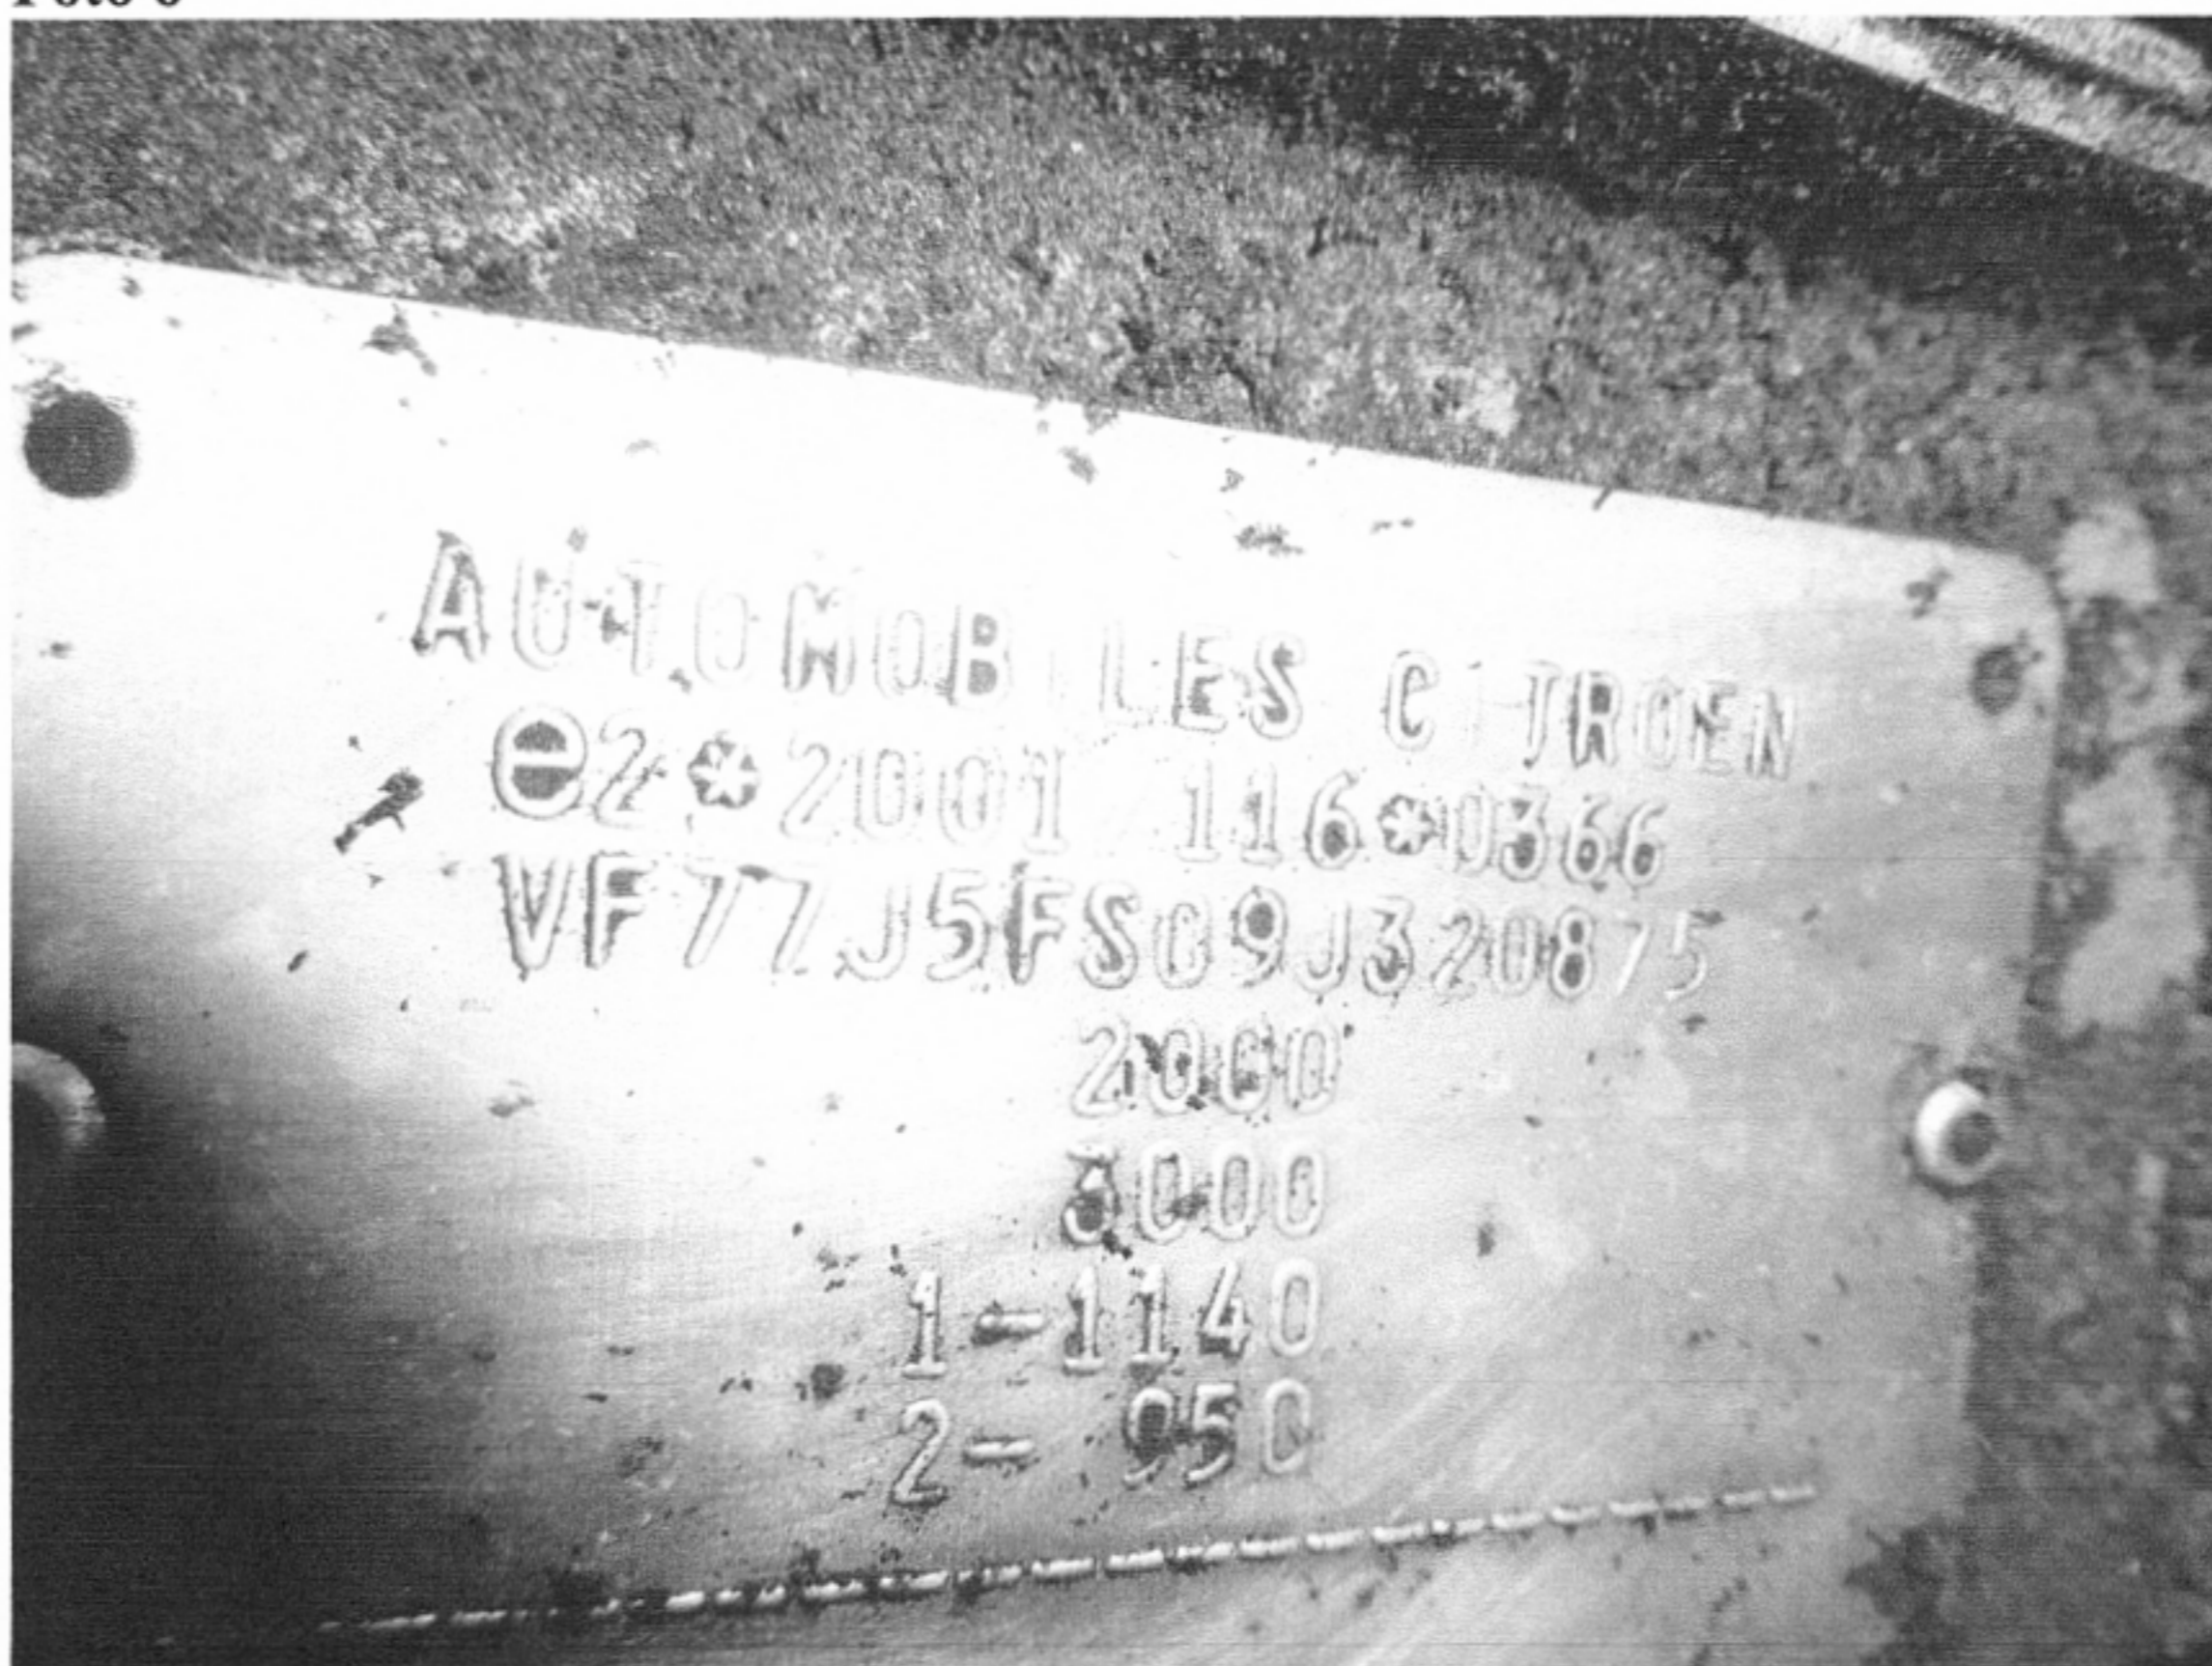 AUTOMOBILES CITROEN
e2*2001/116*0366
VF77J5FSC9J320875
2000
3000
1-1140
2- 950